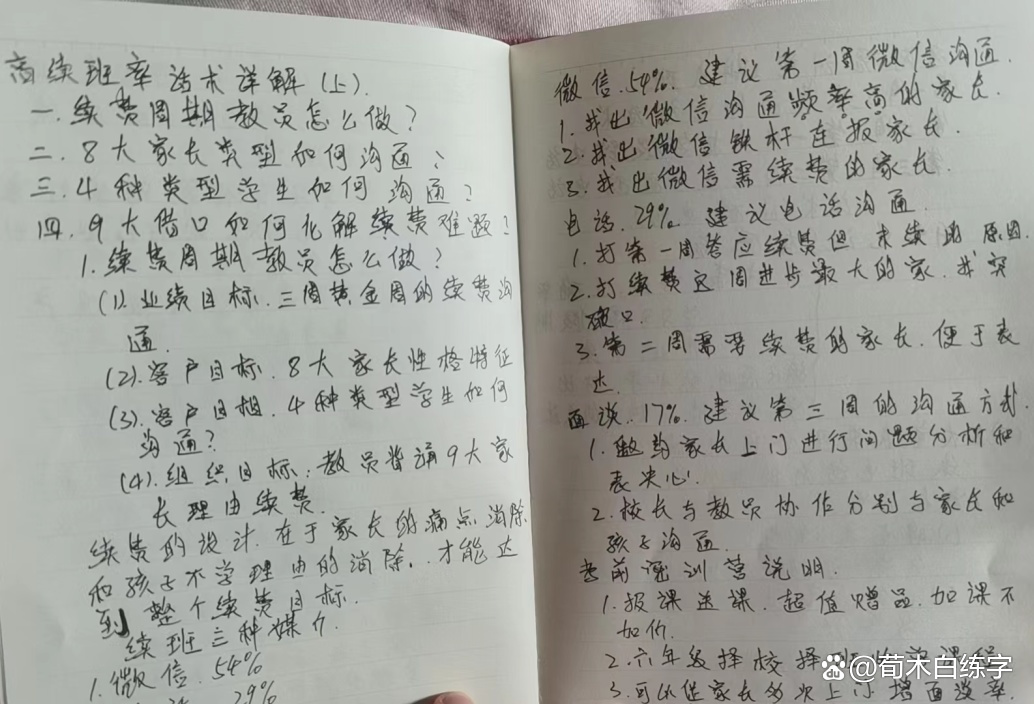 高续班率话术详解(上).
一.续费周期教员怎么做?
二.8大家长类型如何沟通?
三.4种类型学生如何沟通?
四.9大借口如何化解续费难题?
1.续费周期教员怎么做?
(1).业绩目标.三周黄金周的续费沟
通.
(2).客户目标.8大家长性格特征
(3).客户目相.4种类型学生如何
沟通?
(4).组织目标:教员背诵9大家
长理由续费.
续费的设计.在于家长的痛点消除
和孩子不学理由的消除..才能达
到整个续费目标.
续班三种媒介.
1.微信.54%
29%
微信.54%.建议第一周微信沟通.
1.找出微信沟通频率高的家长.
2.找出微信铁杆在报家长.
3.找出微信需续费的家长.
电话.29%.建议电话沟通.
1.打第一周答应续费但未续的原因.
2.打续费这周进步最大的家.找突
破口.
3.第二周需要续费的家长.便于表
达.
面谈.17%.建议第三周的沟通方式.
1.邀约家长上门进行问题分析和
表决心.
2.校长与教员协作分别与家长和
孩子沟通.
考前密训营说明.
1.报课送课.超值赠品.加课不
加价.
2.六年级择校择班
3.可以促家长多次上门增面谈率.
荀木白练字